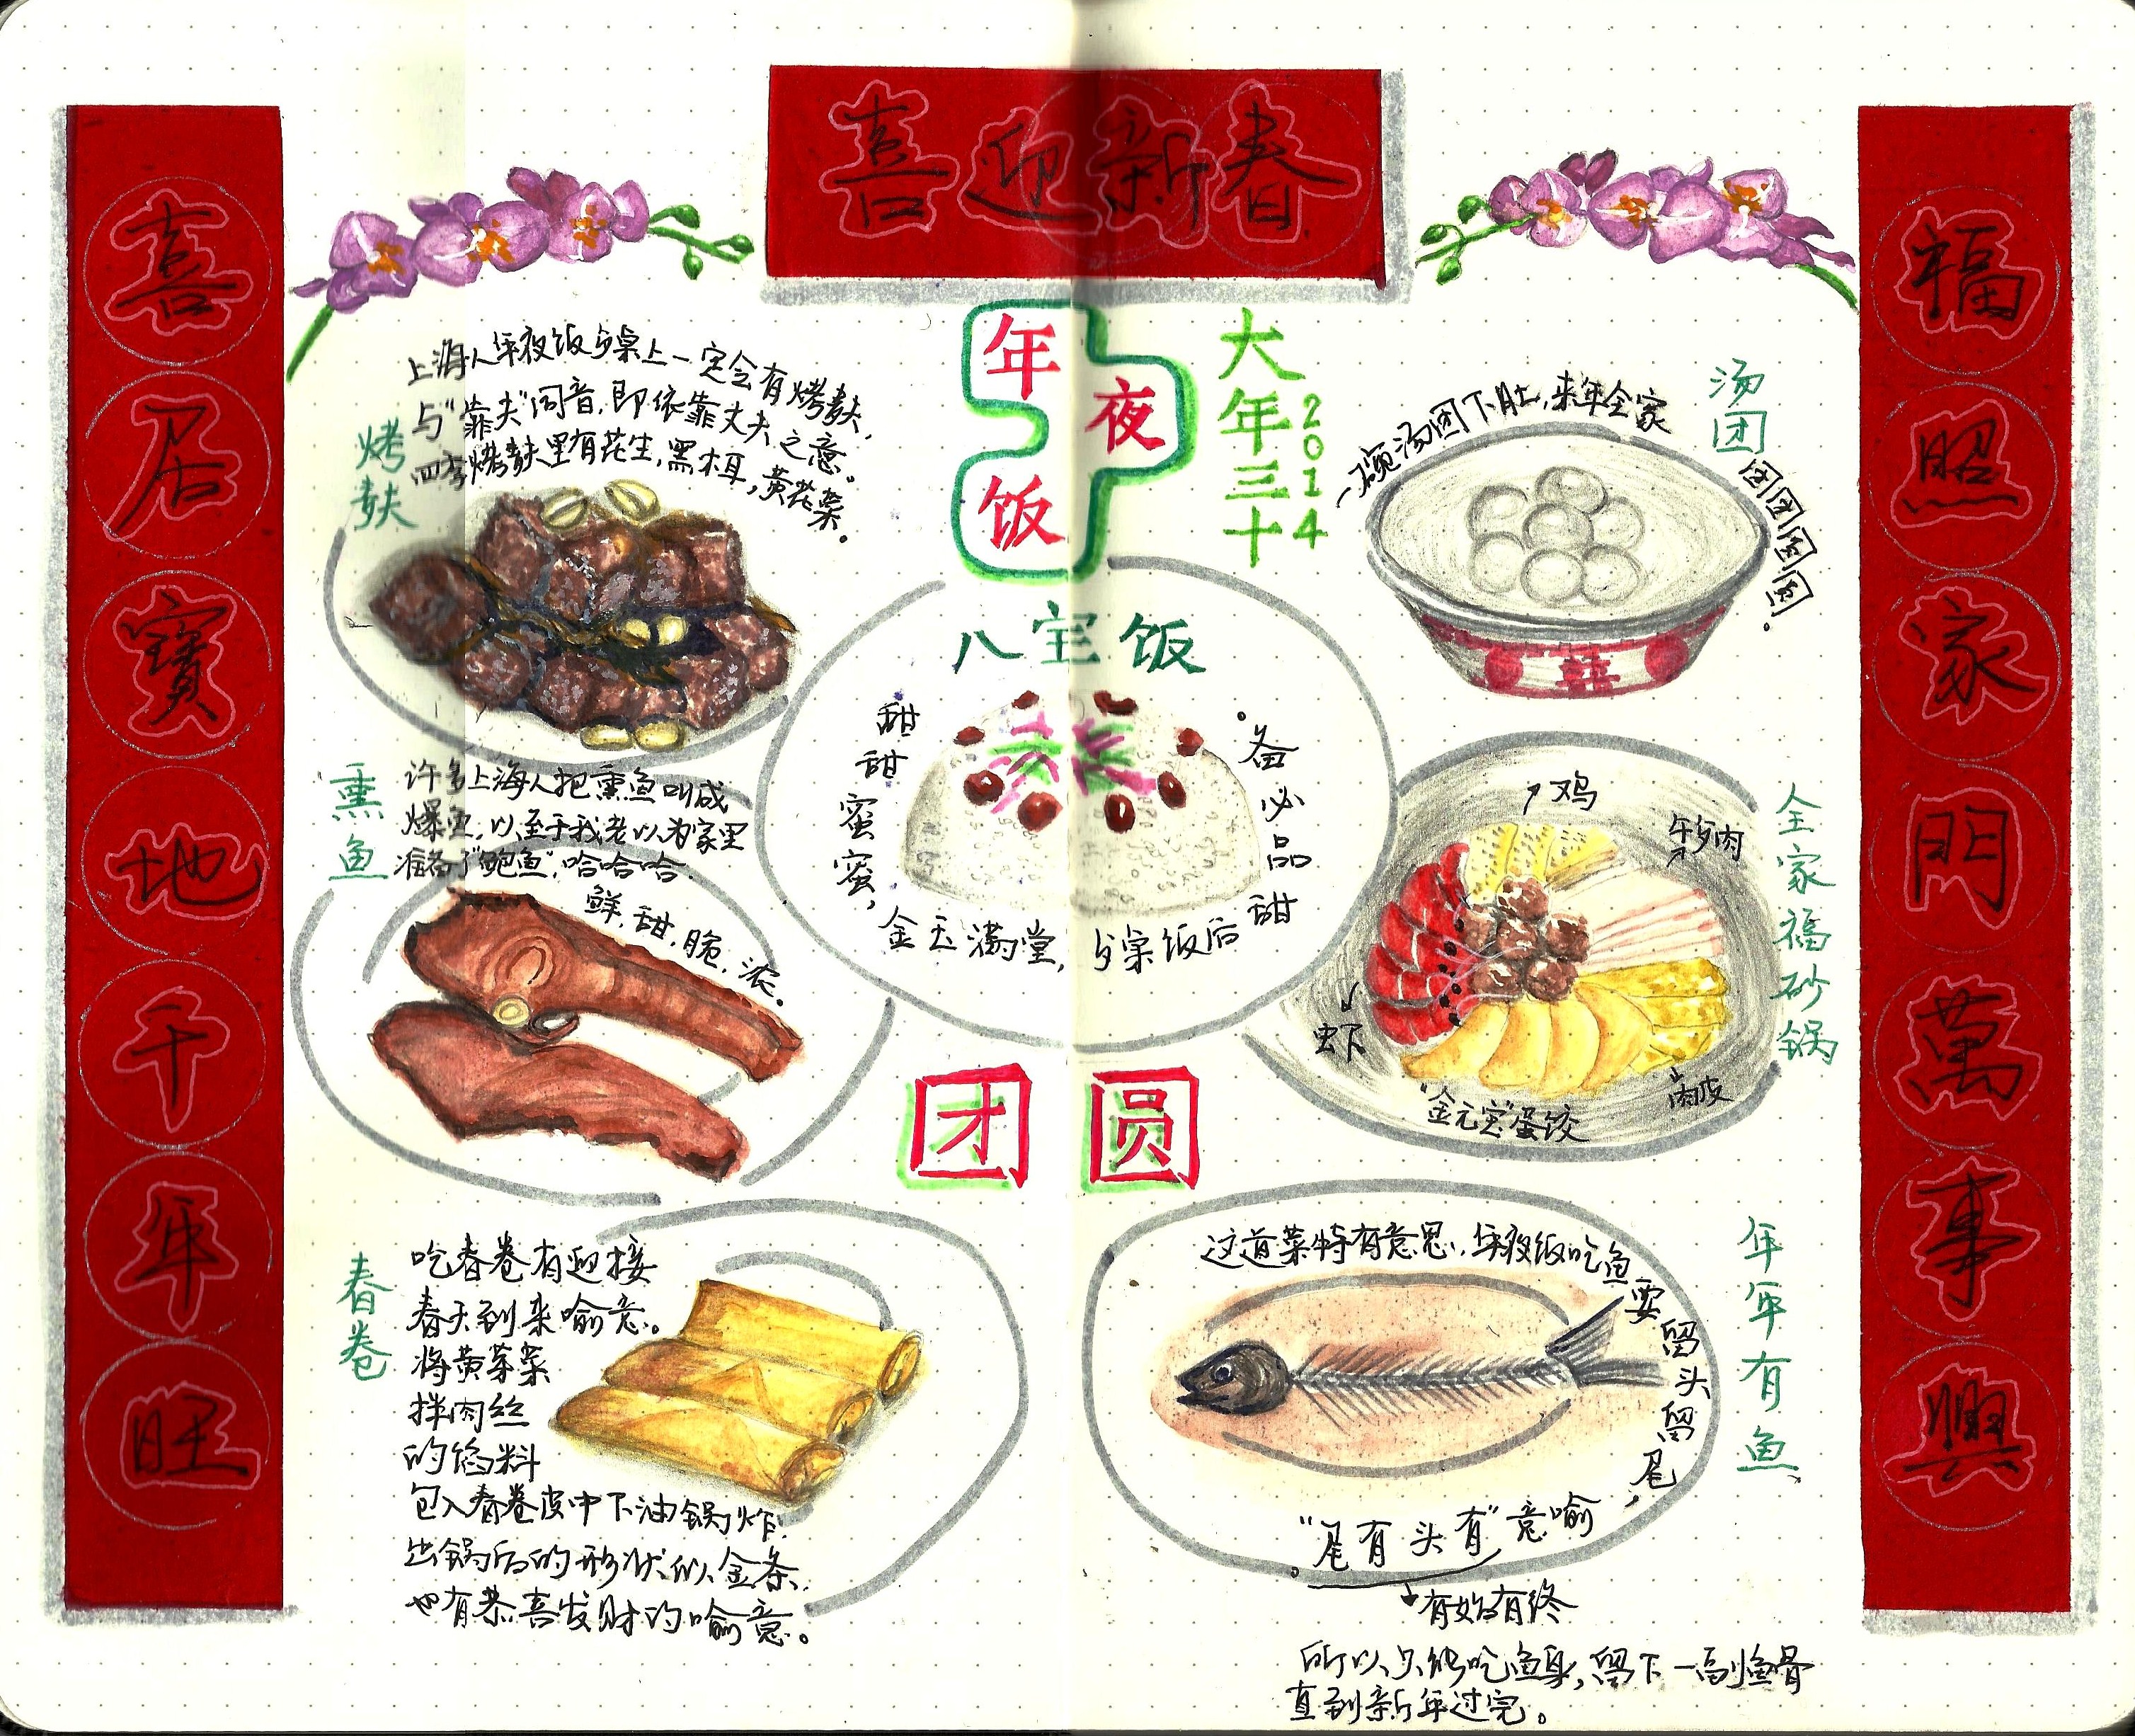 喜迎新春
喜居寶地千年旺
福照家門萬事興
年夜饭
大年三十
2014
烤麸
上海人年夜饭的桌上一定会有烤麸,
与"靠夫"同音,即依靠丈夫之意。
四季烤麸里有花生,黑木耳,黄花菜。
汤团
一碗汤团下肚,来年全家
团团圆圆。
八宝饭
甜甜蜜蜜,
金玉满堂,
饭后甜
备必品。
熏鱼
许多上海人把熏鱼叫成
爆鱼,以至于我老以为家里
准备了"鲍鱼",哈哈哈.
鲜,甜,脆,浓。
全家福砂锅
鸡
肉
虾
"金元宝"蛋饺
肉皮
团圆
春卷
吃春卷有迎接
春天到来喻意。
将黄芽菜
拌肉丝
的馅料
包入春卷皮中下油锅炸,
出锅后的形状似金条,
也有恭喜发财的喻意。
年年有鱼
这道菜特有意思,年夜饭吃鱼
要留头留尾,
"尾有头有"意喻
有始有终
所以只能吃鱼身,留下一副鱼骨
直到新年过完。